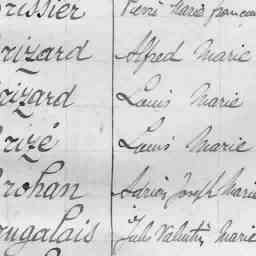 rissier Pierre Marie françois
rizard Alfred Marie
rizard Louis Marie
rizé Louis Marie
rohan Joseph Marie
ugalais Jules Valentin Marie